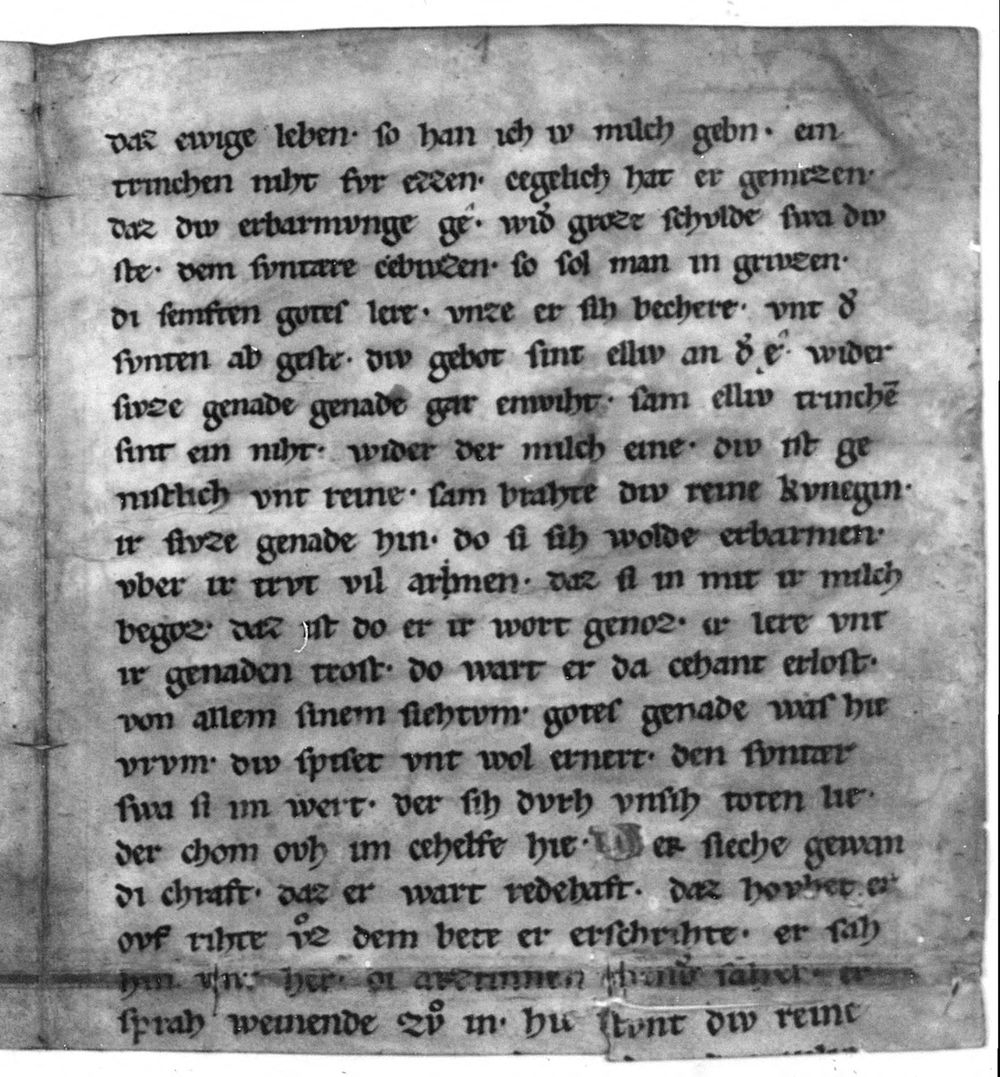 daz ewige leben· so han ich iv milch gebn· ein
trinchen niht fvr ezzen· cegelich hat er gemezen·
daz div erbarmvnge gê· wid̾ groze schvlde swa div
ste· dem svntære cebvzen· so sol man in grvzen·
di semften gotes lere· vnze er sih bechere· vnt d̾
svnten ab geste· div gebot sint elliv an d̾ ê· wider
sivze genade genade gar enwiht· sam elliv trinchē
sint ein niht· wider der milch eine· div ist ge
nistlich vnt reine· sam brahte div reine kvnegin·
ir sivze genade hin· do si sih wolde erbarmen·
vber ir trvt vil armen· daz si in mit ir milch
begoz· daz ist do er ir wort genoz· ir lere vnt
ir genaden trost· do wart er da cehant erlost·
von allem sinem siehtvm· gotes genade was hie
vrvm· div spiset vnt wol ernert· den svntær
swa si im wert· der sih dvrh vnsih toten lie·
der chom ovh im cehelfe hie· W er sieche gewan
di chraft· daz er wart redehaft· daz hovbet er
ovf rihte vͦz dem bete er erschrihte· er sah
hin vnt her· di arzetinnen saher· er
sprah weinende zvͦ in· hie stvnt div reine